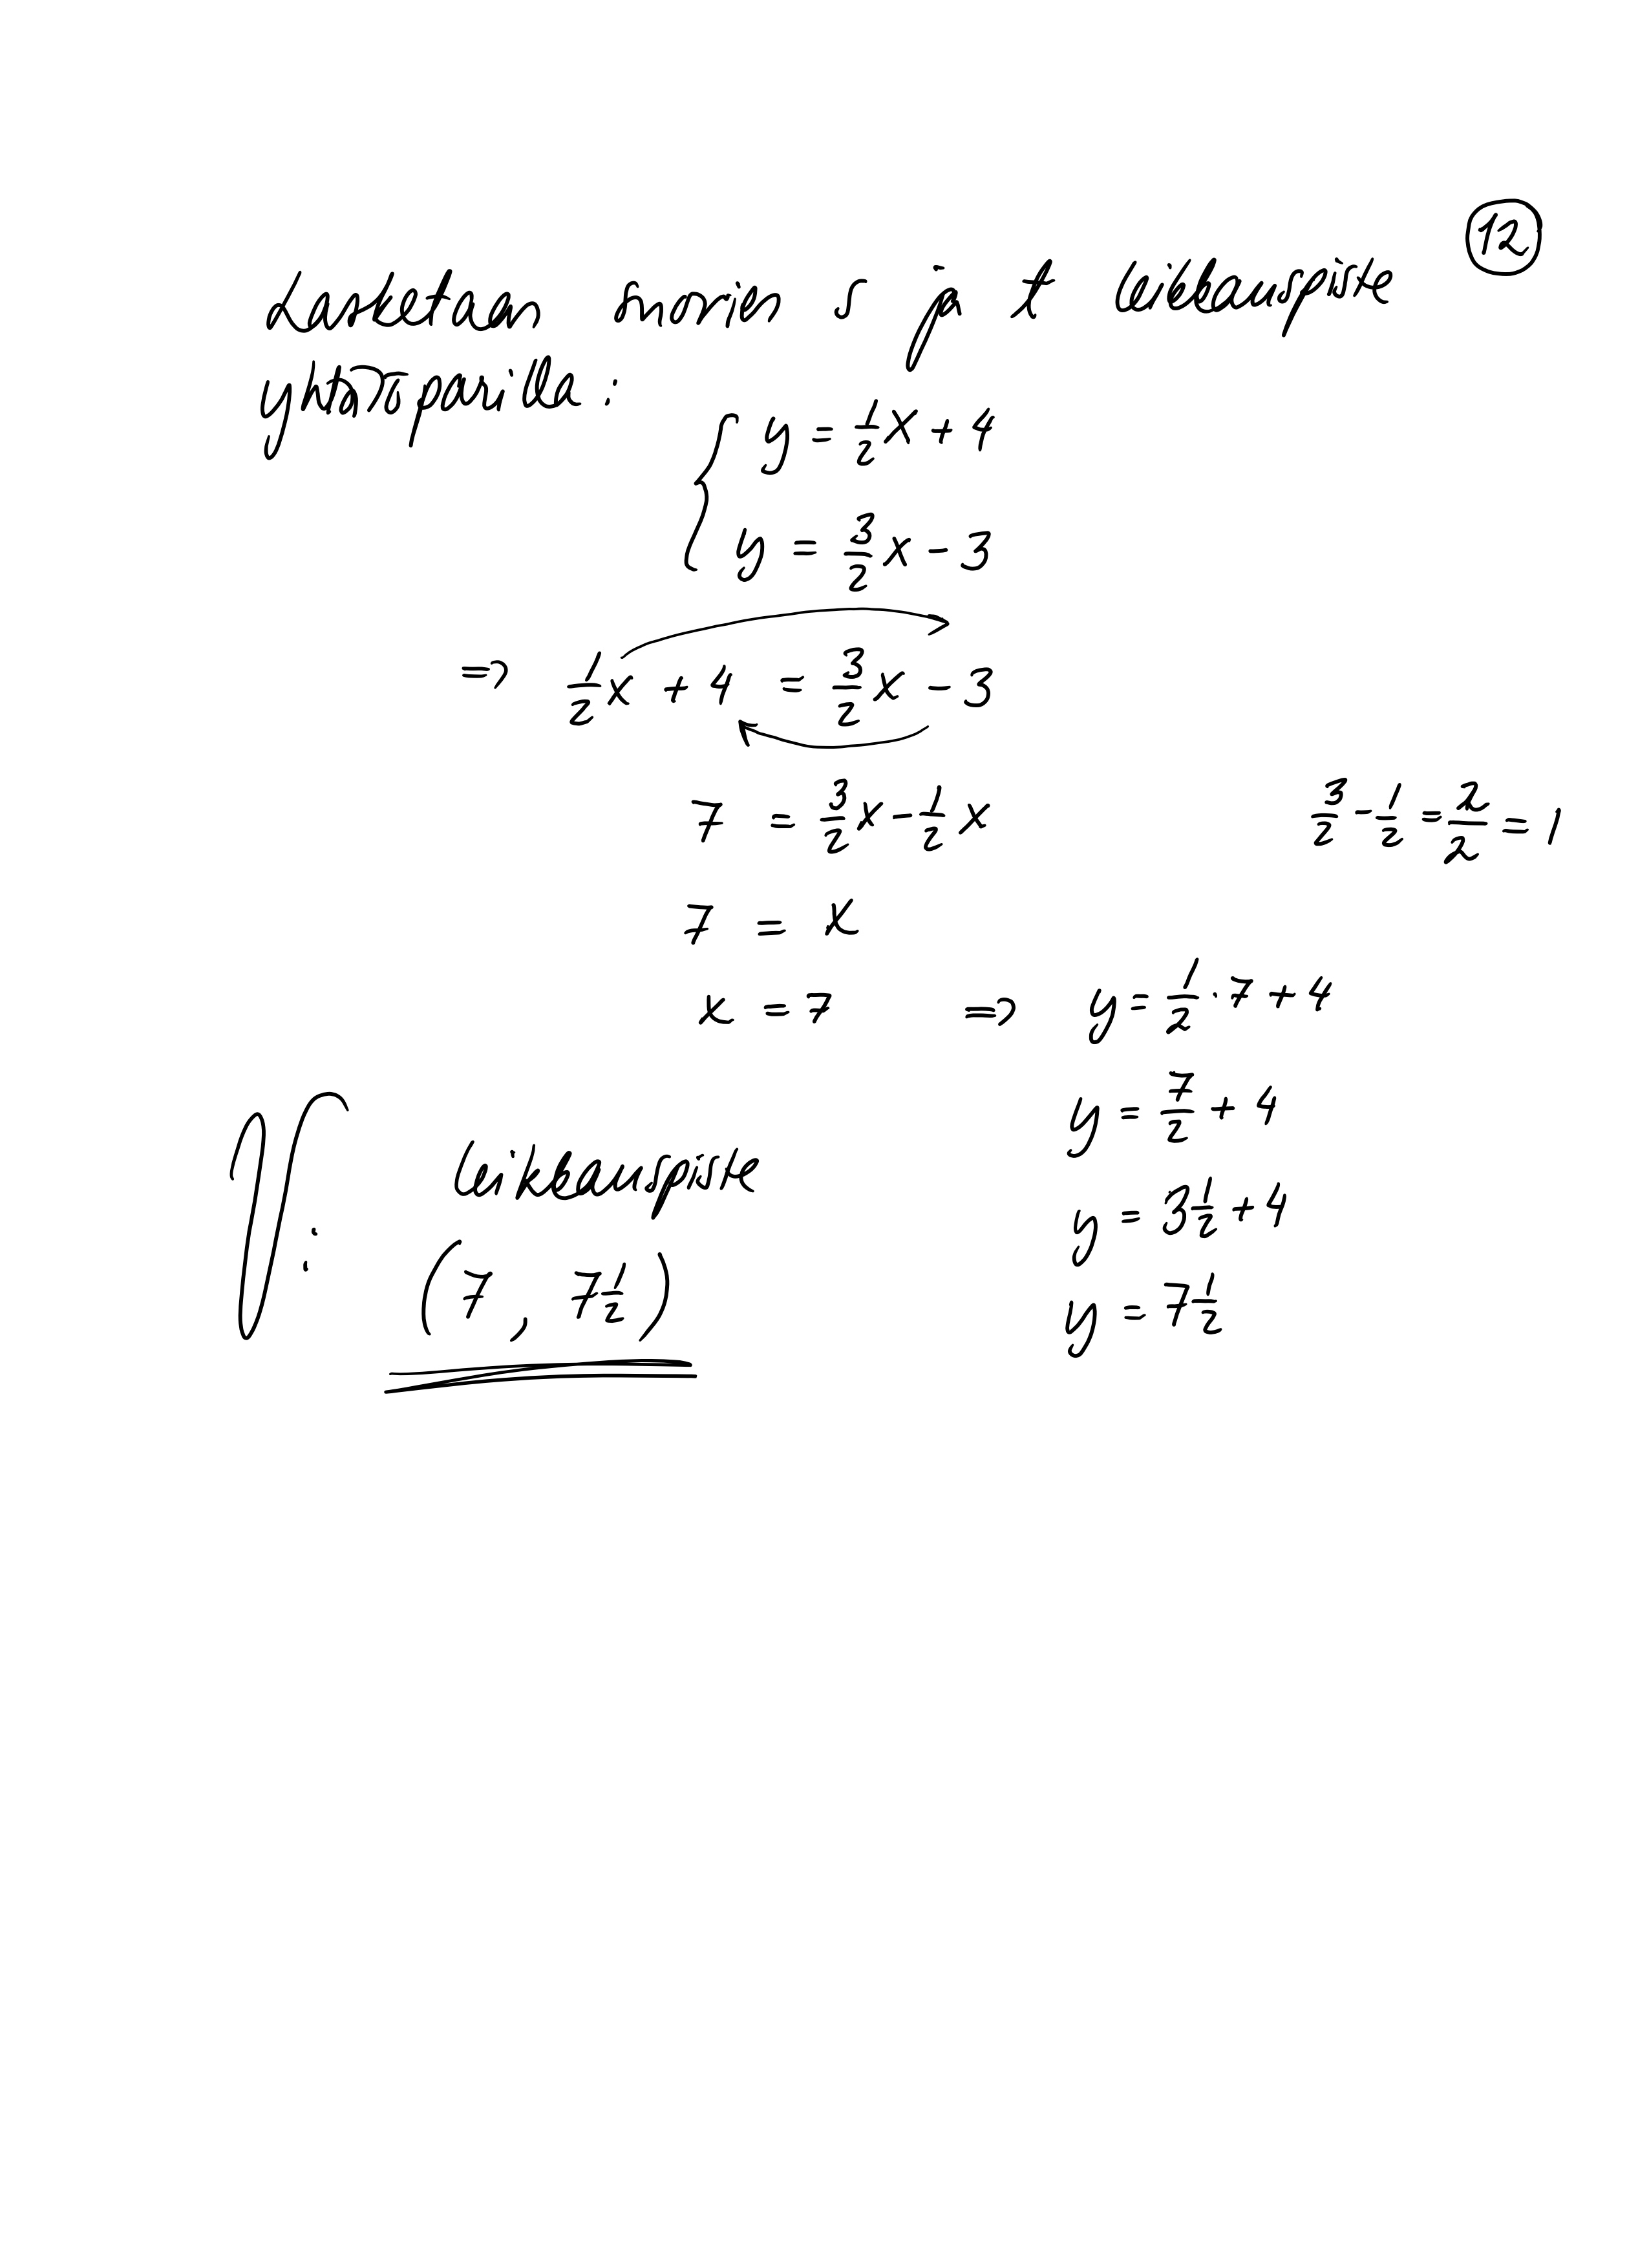 12
Lasketaan suorien s ja t leikkauspiste
yhtälöparilla:
y = 1/2 x + 4
y = 3/2 x - 3
⇒ 1/2 x + 4 = 3/2 x - 3
7 = 3/2 x - 1/2 x    3/2 - 1/2 = 2/2 = 1
7 = x
x = 7 ⇒ y = 1/2 · 7 + 4
y = 7/2 + 4
y = 3 1/2 + 4
y = 7 1/2
V:
leikkauspiste
(7, 7 1/2)